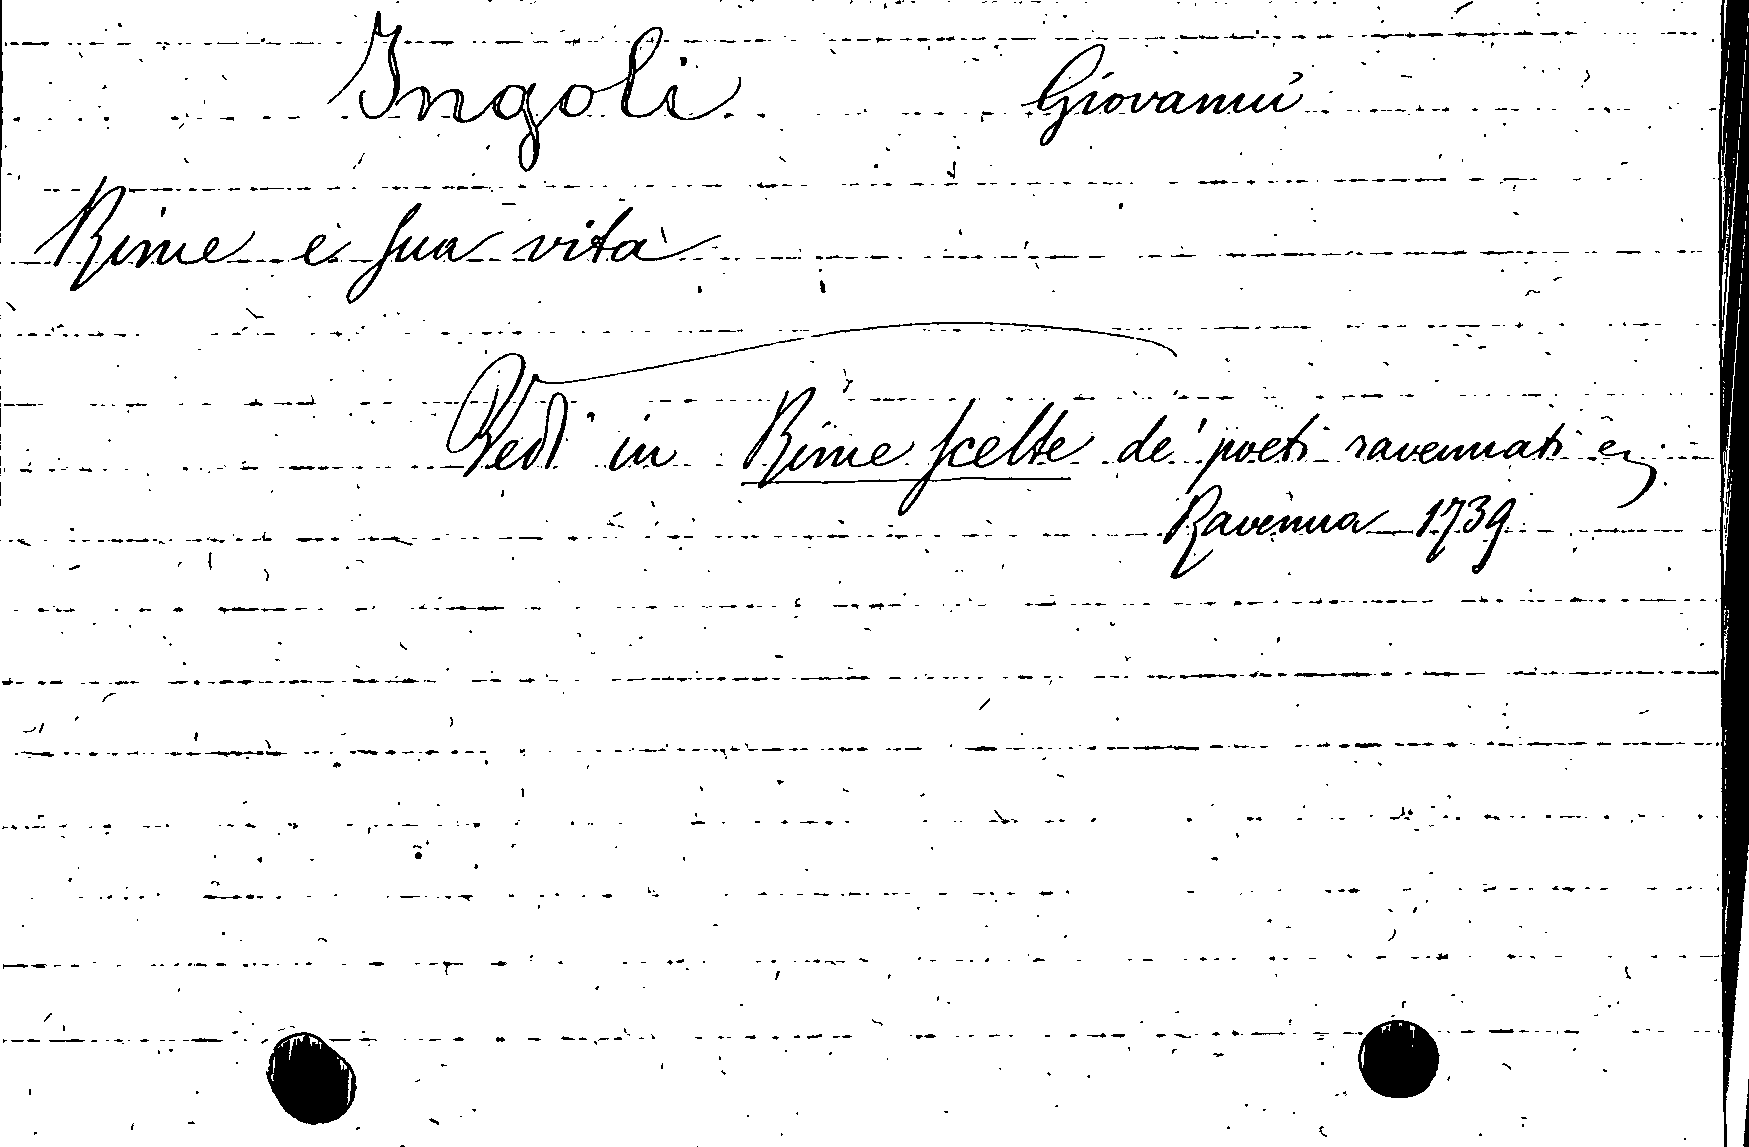 Ingoli Giovanni
Rime e sua vita
Vedi in Rime scelte de' poeti ravennati
Ravenna 1739